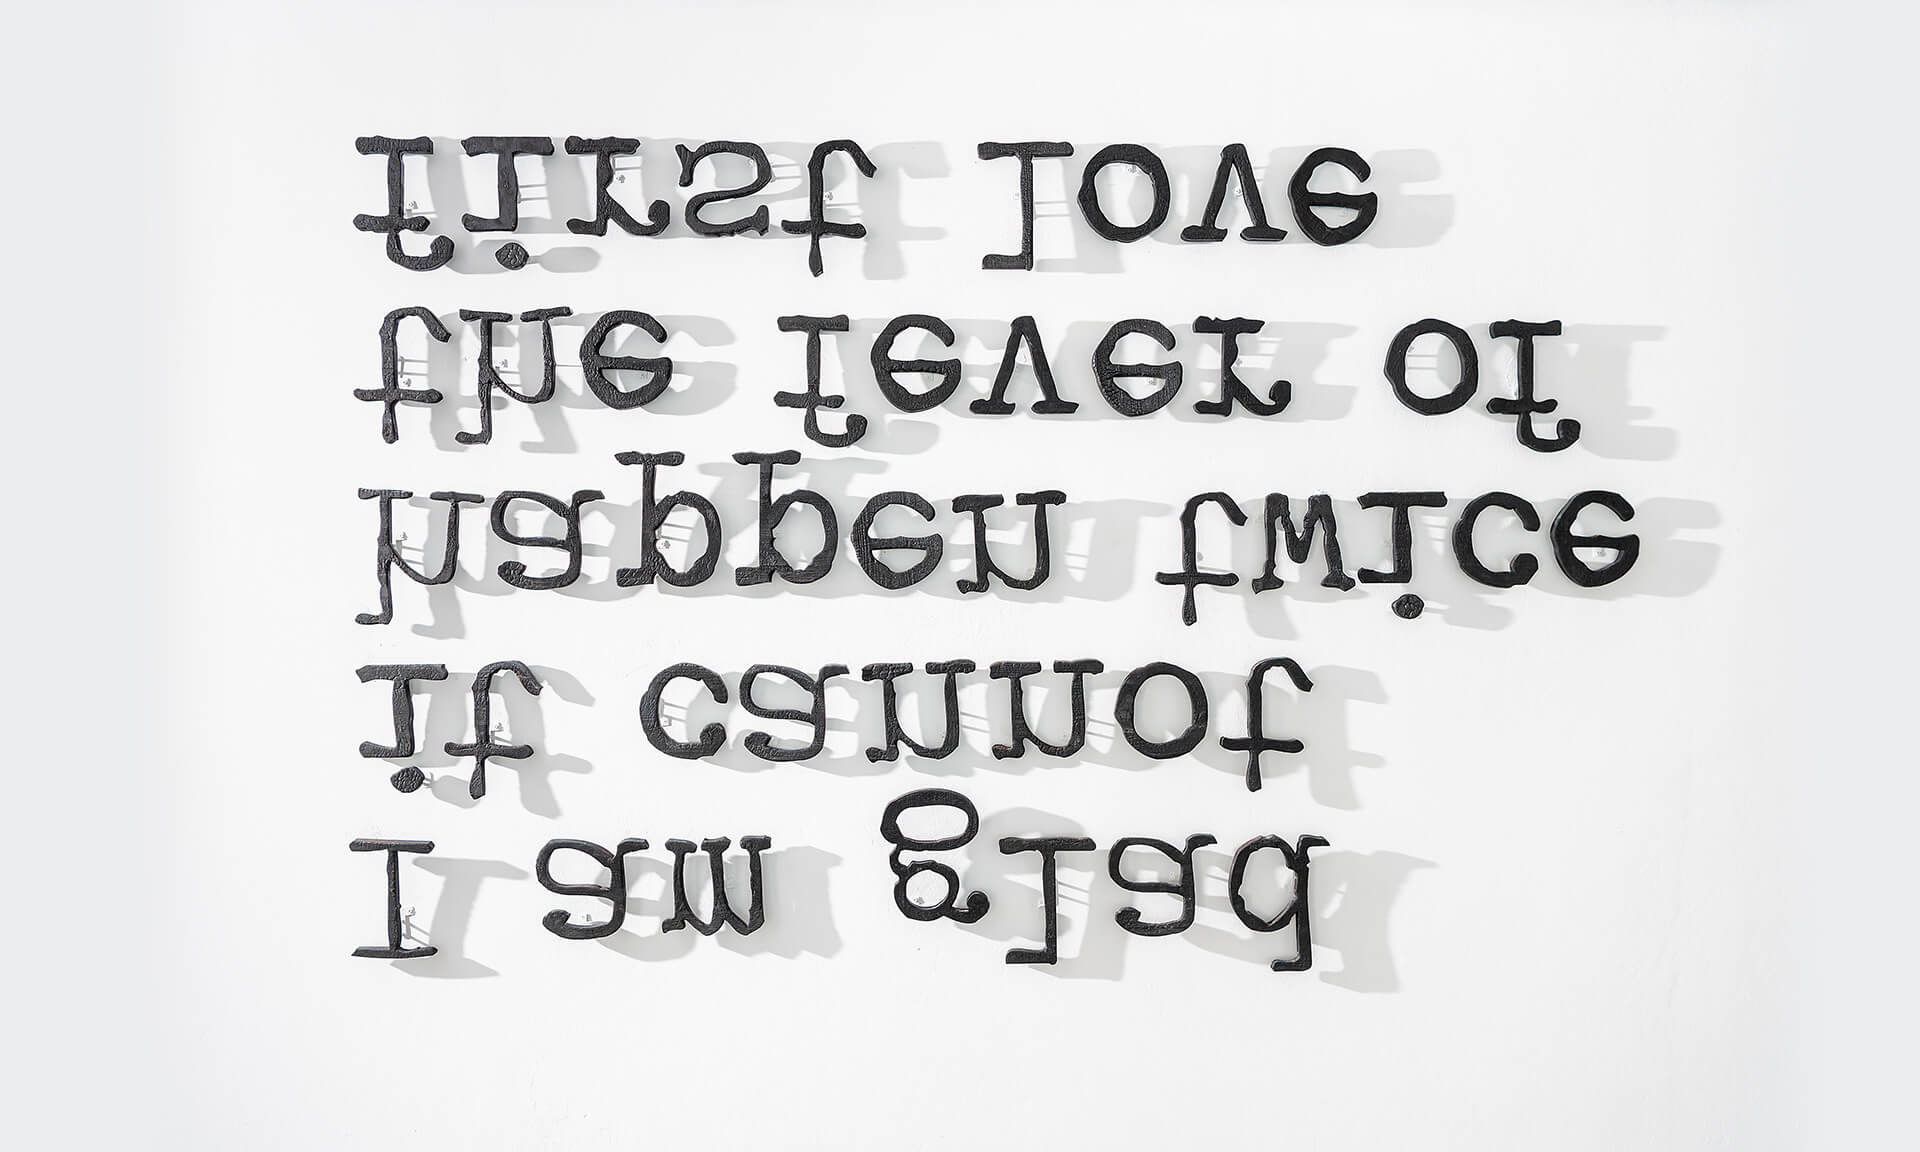 I am glad
it cannot
happen twice
the fever of
first love